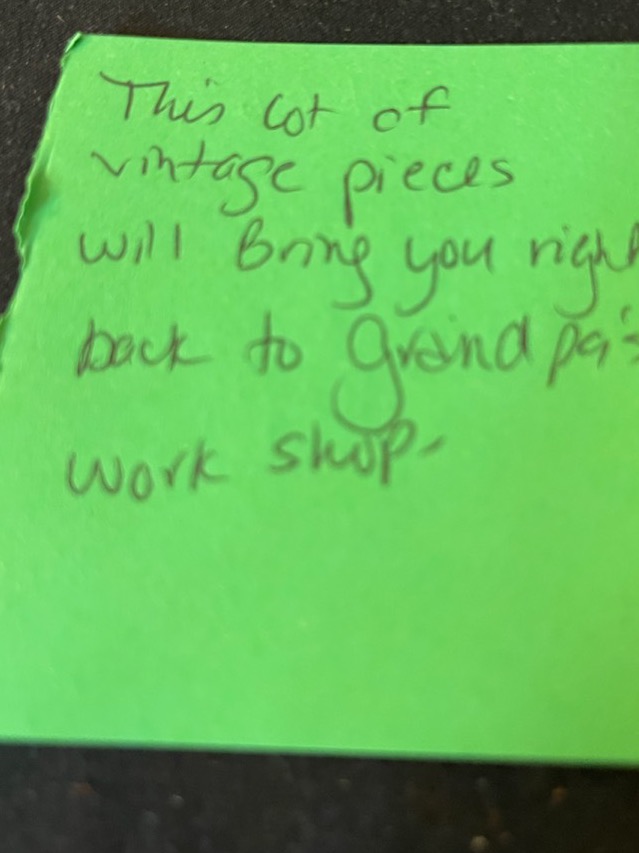 This Lot of
vintage pieces
will Bring you right
back to Grandpa's
work shop.